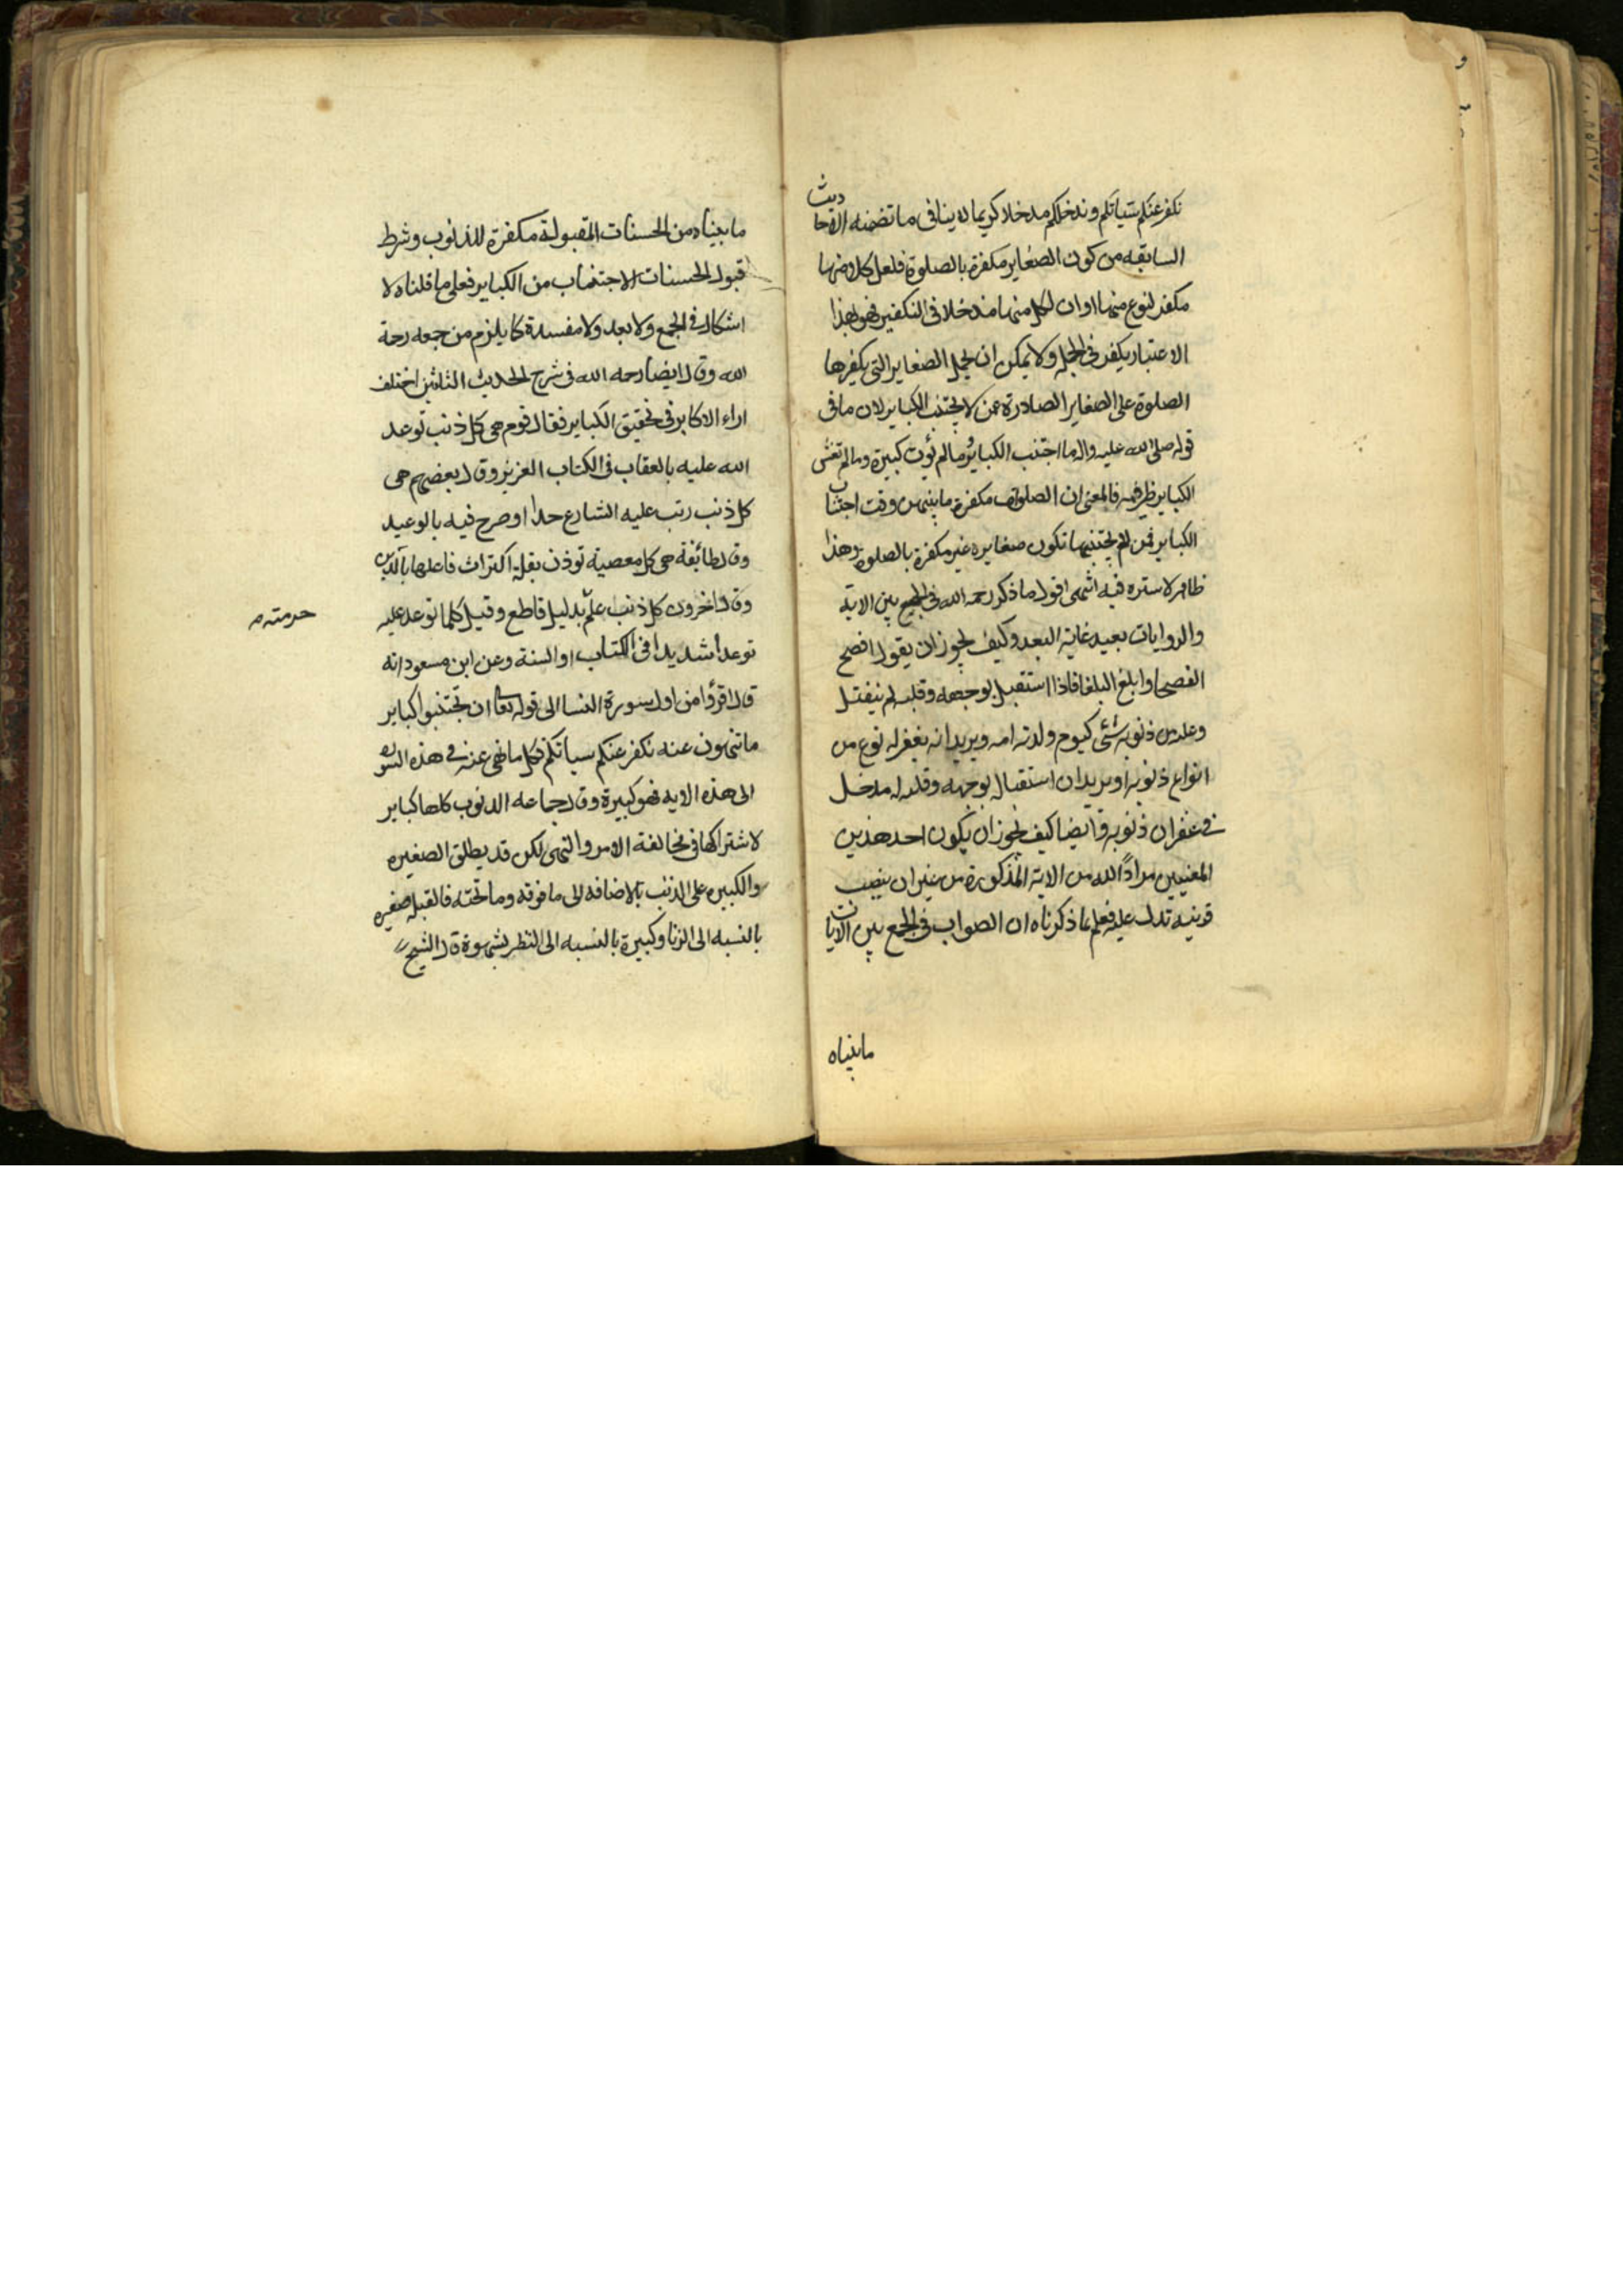 نكفر عنكم سيّاتكم وندخلكم مدخلا كريما لا ينافى ما تضمنه الاحاديث
السابقه من كون الصغاير مكفرة بالصلوة فلعل كلا منهما
مكفر لنوع منها او ان لكل منهما مدخلا فى التكفير فهو بهذا
الاعتبار يكفر فى الجمله ولا يمكن ان يحمل الصغاير التى يكفرها
الصلوة على الصغاير الصادرة عمن لا يجتنب الكباير لان ما فى
قوله صلى الله عليه واله ما اجتنب الكباير وما لم يؤت كبيرة وما لم تغش
الكباير ظرفيه فالمعنى ان الصلوة مكفرة ما بينهن وقت اجتناب
الكباير فمن لم يجتنبها تكون صغايره غير مكفرة بالصلوة وهذا
ظاهر لا ستره فيه انتهى اقول ما ذكر رحمه الله فى الجمع بين الاية
والروايات بعيد غاية البعد وكيف يجوز ان يقول افصح
الفصحا وابلغ البلغا فاذا استقبل بوجهه وقلبه لم ينفتل
وعليه من ذنوبه شئ كيوم ولدته امه ويريد انه يغفر له نوع من
انواع ذنوبه او يريد ان استقباله بوجهه وقلبه له مدخل
فى غفران ذنوبه وايضا كيف يجوز ان يكون احد هذين
المعنيين مرادًا لله من الاية المذكورة من غير ان ينصب
قرينه تدل عليه فعلم بما ذكرناه ان الصواب فى الجمع بين الايات
ما بيناه
ما بيناه من الحسنات المقبولة مكفرة للذنوب وشرط
قبول الحسنات الاجتناب من الكباير فعلى ما قلناه لا
اشكال فى الجمع ولا بعد ولا مفسدة كما يلزم من جمعه رحمة
الله وقال ايضا رحمه الله فى شرح الحديث الثلثين اختلف
اراء الاكابر فى تحقيق الكباير فقال قوم هى كل ذنب توعد
الله عليه بالعقاب فى الكتاب العزيز وقال بعضهم هى
كل ذنب رتب عليه الشارع حدا او صرح فيه بالوعيد
وقال طائفة هى كل معصية توذن بقلة اكتراث فاعلها بالدين
وقال اخرون كل ذنب علم بدليل قاطع وقيل كلما توعد عليه
حرمته م
توعدا شديدا فى الكتاب او السنة وعن ابن مسعود انه
قال اقرؤا من اول سورة النسا الى قوله تعا ان تجتنبوا كباير
ما تنهون عنه نكفر عنكم سياتكم فكل ما نهى عنه فى هذه السوره
الى هذه الايه فهو كبيرة وقال جماعه الذنوب كلها كباير
لاشتراكها فى مخالفة الامر والنهى لكن قد يطلق الصغيره
والكبيره على الذنب بالاضافه الى ما فوقه وما تحته فالقبله صغيره
بالنسبه الى الزنا وكبيرة بالنسبه الى النظر بشهوة قال الشيخ